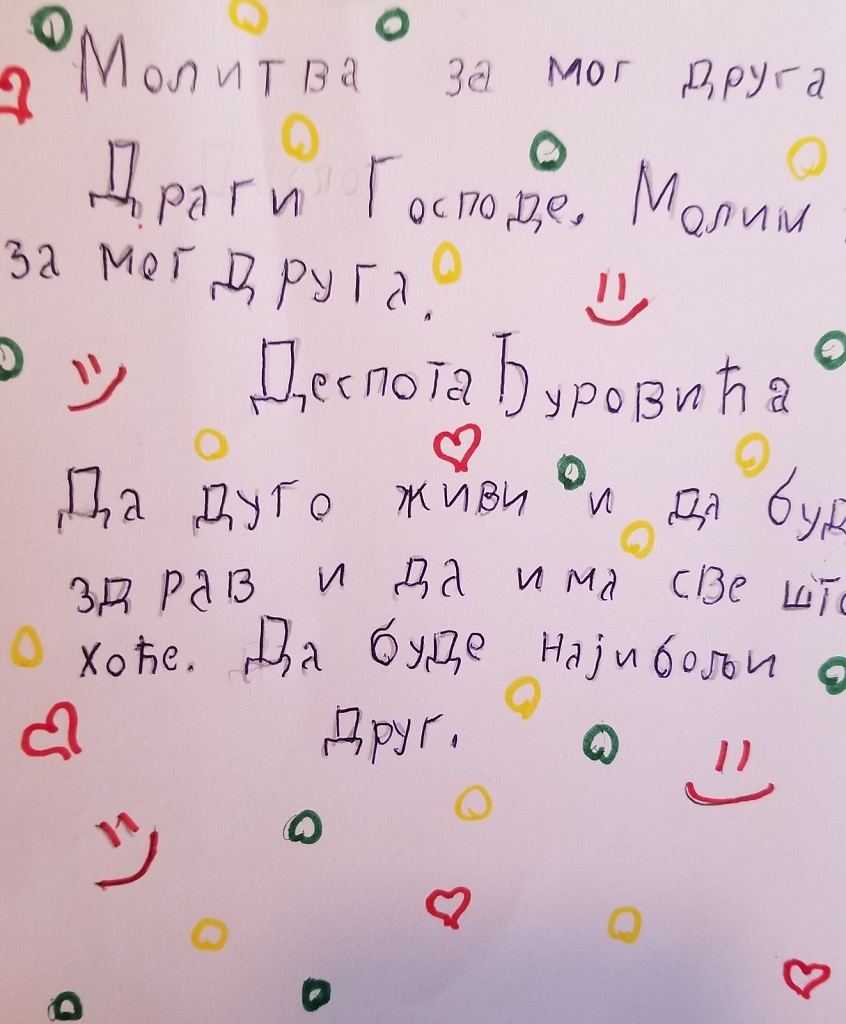 Молитва за мог друга
Драги Господе. Молим
за мог друга.
Деспота Ђуровића
Да дуго живи и да буд
здрав и да има све што
хоће. Да буде најибољи
друг.